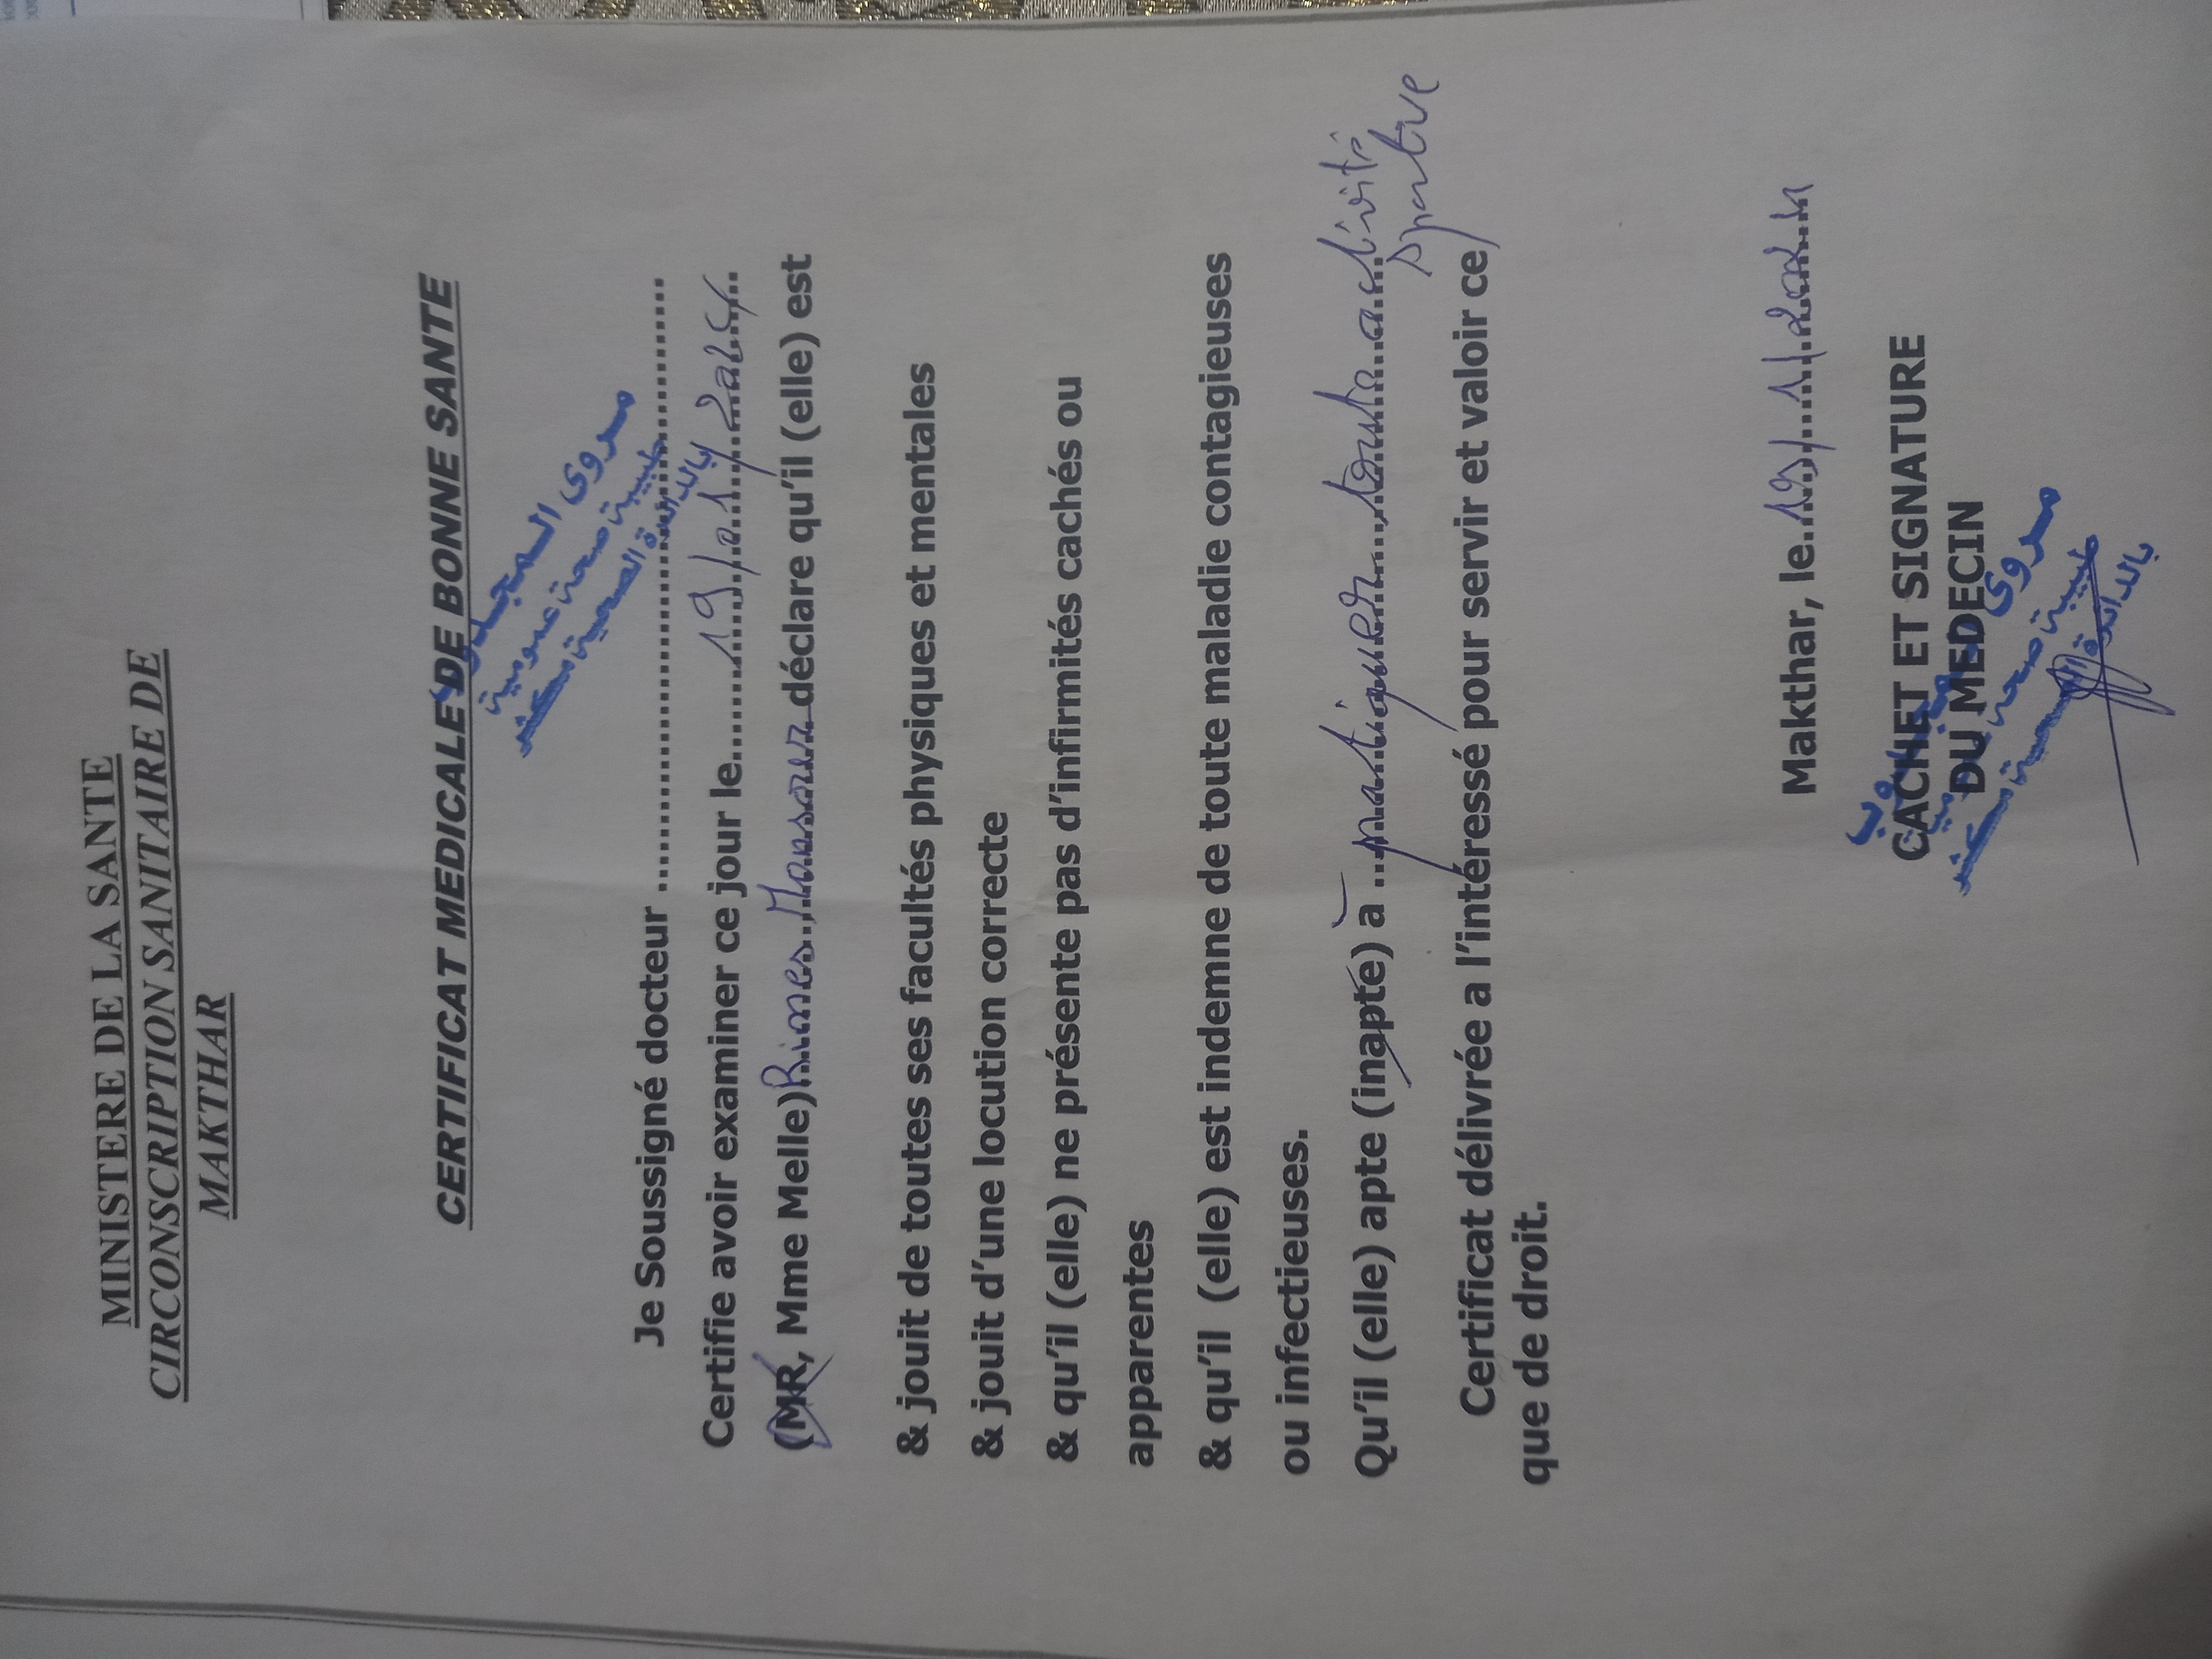 MINISTERE DE LA SANTE
CIRCONSCRIPTION SANITAIRE DE
MAKTHAR
CERTIFICAT MEDICALE DE BONNE SANTE
طبيبة صحة عمومية
بالدائرة الصحية مكثر
Je Soussigné docteur
Certifie avoir examiner ce jour le 19/01/2024
(MR, Mme Melle) Rimes Mansour déclare qu'il (elle) est
& jouit de toutes ses facultés physiques et mentales
& jouit d'une locution correcte
& qu'il (elle) ne présente pas d'infirmités cachés ou
apparentes
& qu'il (elle) est indemne de toute maladie contagieuses
ou infectieuses.
Qu'il (elle) apte (inapte) à pratiquer toute activité
sportive
Certificat délivrée a l'intéressé pour servir et valoir ce
que de droit.
Makthar, le 19/1/2024
CACHET ET SIGNATURE
DU MEDECIN
طبيبة صحة عمومية
بالدائرة الصحية مكثر